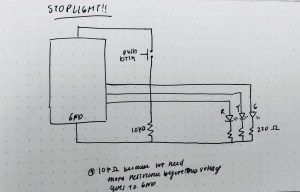 STOPLIGHT!!
push
btn
R
Y
G
GND
10kΩ
220 Ω
10kΩ because we need
more resistance before the voltage
goes to GND